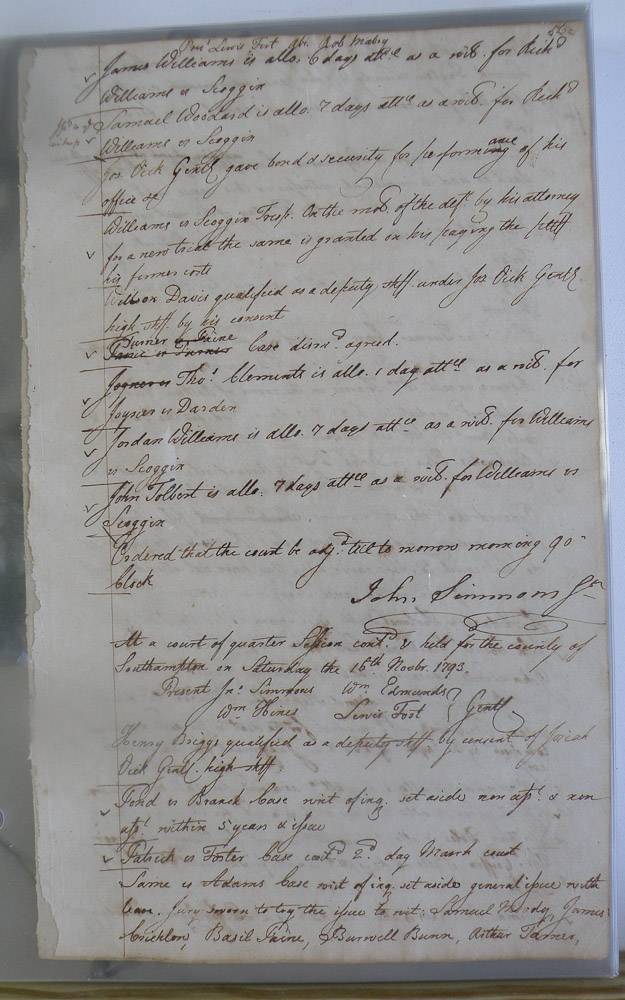 Pres.t Lewis Fort Gt. Rob Mabry
James Williams is allo. 6 days att.ce as a wit. for Rich.d
Williams vs Scoggin
Samuel Woodard is allo. 7 days att.ce as a wit. for Rich.d
Williams vs Scoggin
Jos. Dick Gentl. gave bond & security for performance of his
office &c
Williams vs Scoggin Tresp. On the mo.n of the def.t by his attorney
for a new trial the same is granted on his paying the pltff
his former costs
Davis qualified as a deputy shff. under Jos. Dick Gentl.
high shff. by his consent
Turner vs Faine
Case dism.d agreed.
Tho.s Clements is allo. 1 day att.ce as a wit. for
Joyner vs Darden
Jordan Williams is allo. 7 days att.ce as a wit. for Williams
vs Scoggin
John Tolbert is allo. 7 days att.ce as a wit. for Williams vs
Scoggin
Ordered that the court be adj.d till to morrow morning 9 o
Clock
John Simmons
At a court of quarter Session cont.d & held for the county of
Southampton on Saturday the 16th Novbr. 1793.
Present Jn.o Simmons Wm Edmunds
Wm Hines Lewis Fort } Gentl.
Henry Briggs qualified as a deputy shff by consent of Josiah
Dick Gentl. high shff.
vs Branch Case writ of inq. set aside non ass.t & non
ass.t within 5 years & issue
Patrick vs Foster Case cont.d 2.d day March court
Same vs Adams Case writ of inq. set aside general issue with
leave. Jury sworn to try the issue to wit: Samuel Moody, James
Crichlow, Basil Faine, Burwell Bunn, Arthur Turner,